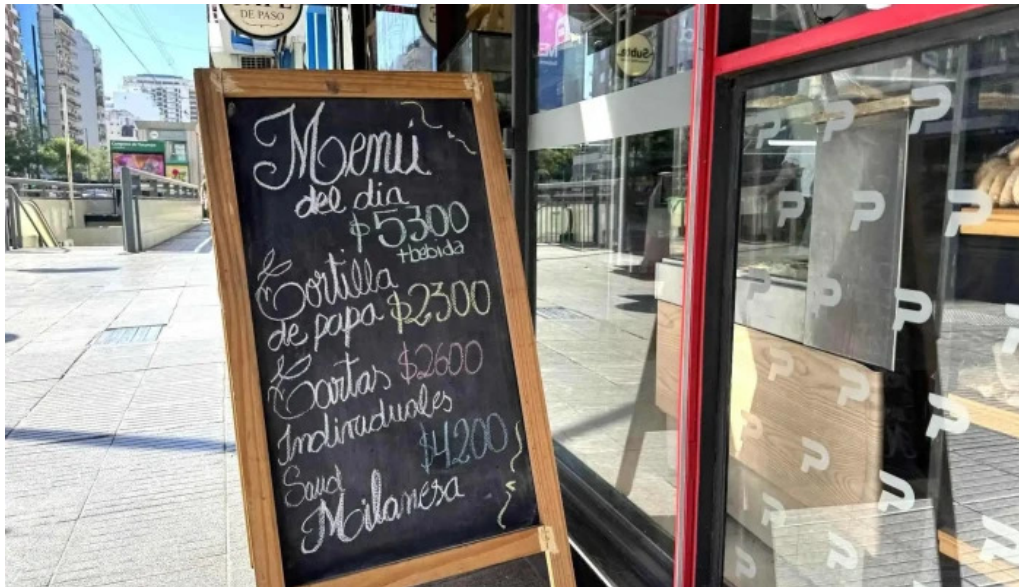 DE PASO
Menú
del dia
$5300
+bebida
Tortilla
de papa $2300
Tartas $2600
Individuales
$4200
Sand
Milanesa
Subte